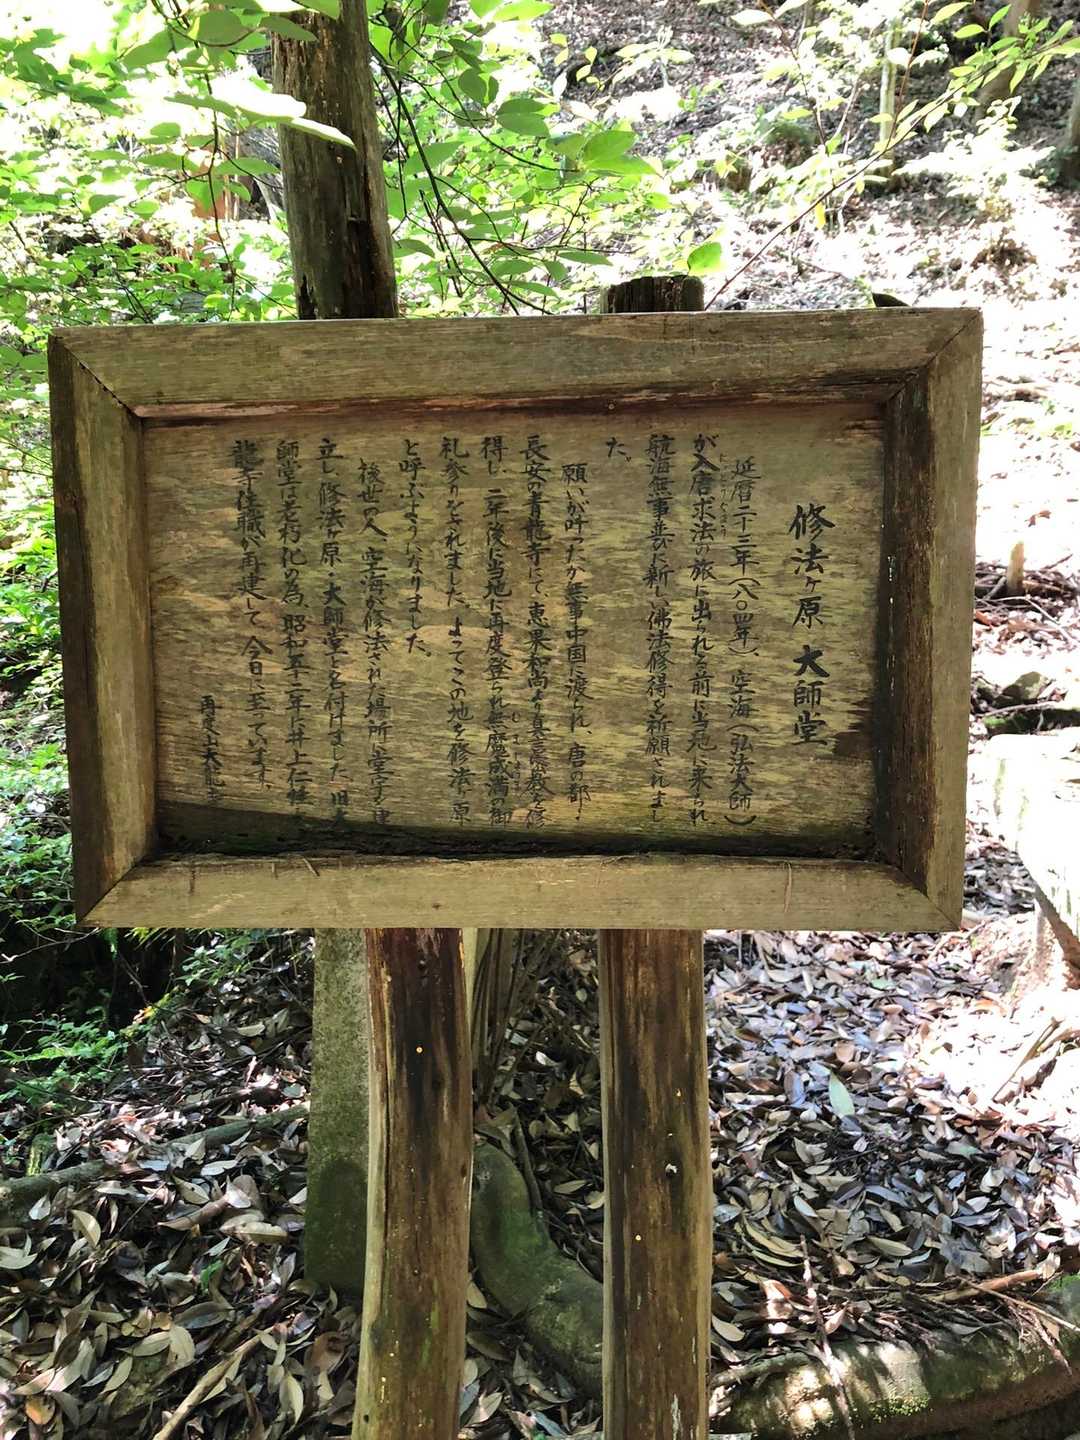 修法ヶ原・大師堂
延暦二十三年（八〇四年）、空海（弘法大師）
が入唐求法の旅に出られる前に当地に来られ
航海無事並びに新しい佛法修得を祈願されまし
た。
願いが叶ったか無事中国に渡られ、唐の都・
長安の青龍寺にて、恵果和尚より真言密教を修
得し、二年後に当地に再度登られ無魔成満の御
礼参りをされました。よってこの地を修法ヶ原
と呼ぶようになりました。
後世の人、空海が修法された場所に堂宇を建
立し、修法ヶ原・大師堂と名付けました。旧大
師堂は老朽化の為、昭和五十二年に井上仁
龍寺住職が再建して今日に至っています。
再度山大龍寺